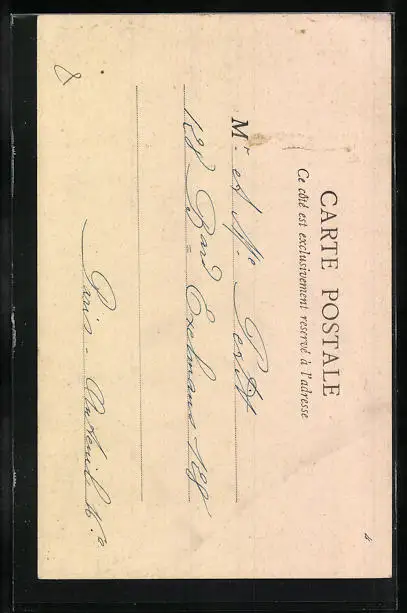 CARTE POSTALE
Ce côté est exclusivement reservé à l'adresse
Mr et Me Petit
128 Bard Exelmans 128
Paris - Auteuil 16e
4